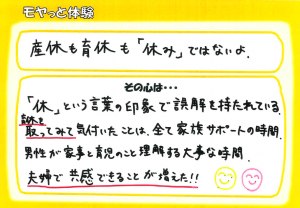 モヤっと体験
産休も育休も「休み」ではないよ.
その心は…
「休」という言葉の印象で誤解を持たれている.
育休を
取ってみて気付いたことは、全て家族サポートの時間.
男性が家事と育児のこと理解する大事な時間.
夫婦で共感できることが増えた!!